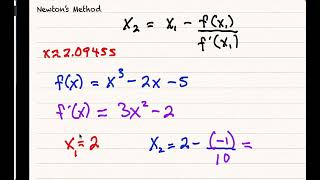 Newton's Method
x₂ = x₁ - f(x₁)/f'(x₁)
x≈2.09455
f(x) = x³ - 2x - 5
f'(x) = 3x² - 2
x₁ = 2 x₂ = 2 - (-1)/10 =